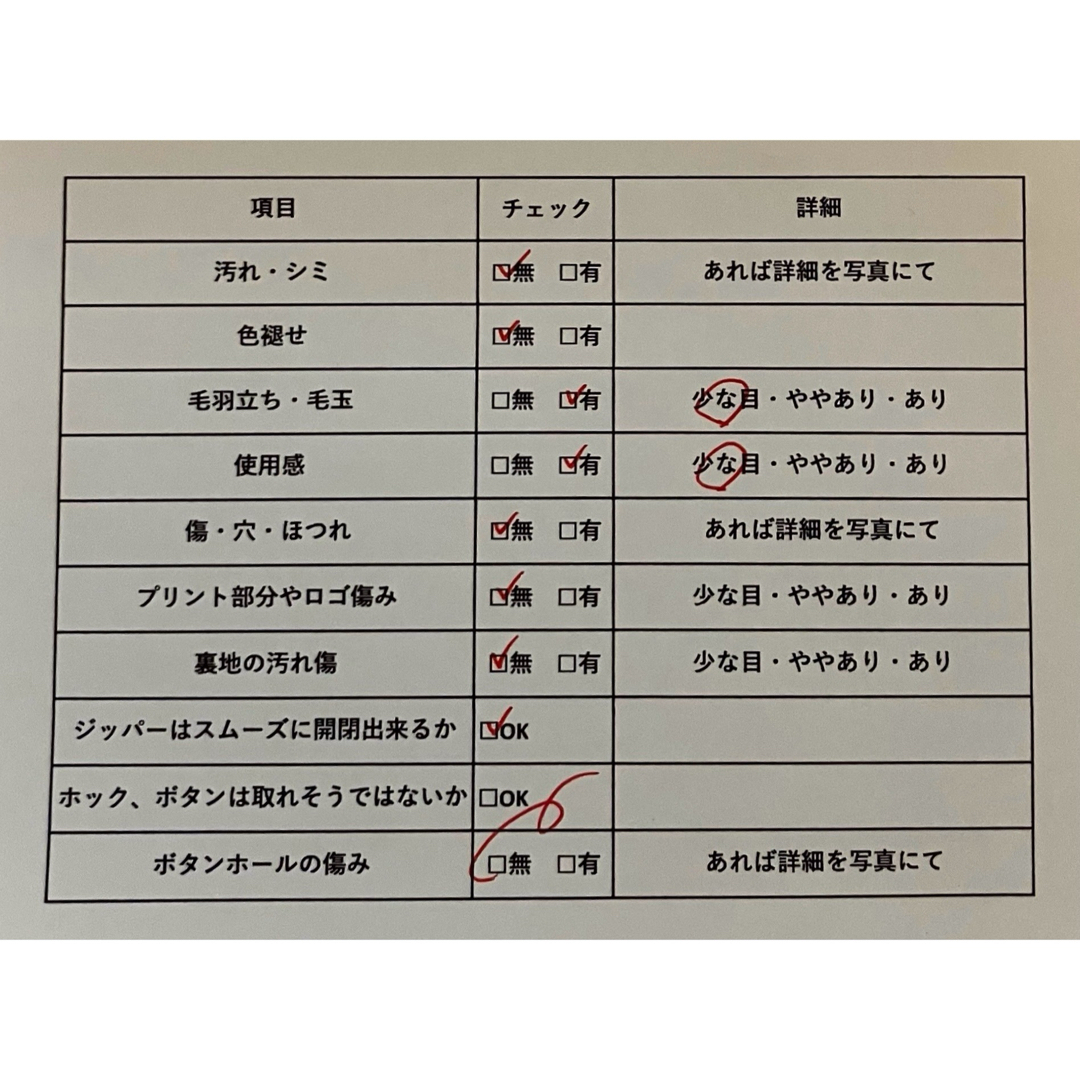 項目 チェック 詳細
汚れ・シミ ☑無 □有 あれば詳細を写真にて
色褪せ ☑無 □有
毛羽立ち・毛玉 □無 ☑有 少な目・ややあり・あり
使用感 □無 ☑有 少な目・ややあり・あり
傷・穴・ほつれ ☑無 □有 あれば詳細を写真にて
プリント部分やロゴ傷み ☑無 □有 少な目・ややあり・あり
裏地の汚れ傷 ☑無 □有 少な目・ややあり・あり
ジッパーはスムーズに開閉出来るか ☑OK
ホック、ボタンは取れそうではないか □OK
ボタンホールの傷み □無 □有 あれば詳細を写真にて